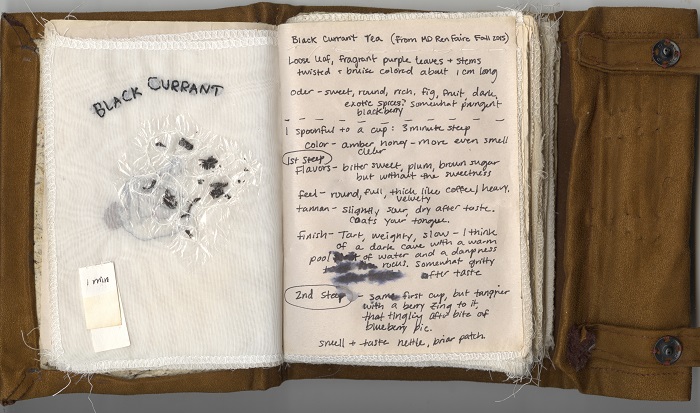 BLACK CURRANT
1 min
Black Currant Tea (from MD Ren Faire Fall 2015)
Loose leaf, fragrant purple leaves + stems
twisted + bruise colored about 1 cm long
oder - sweet, round, rich, fig, fruit, dark,
exotic spices? somewhat pungent
blackberry
1 spoonful to a cup : 3 minute steep
color - amber, honey - more even smell
clear
1st steep
Flavors - bitter sweet, plum, brown sugar
but without the sweetness
feel - round, full, thick like coffee, heavy,
velvety
tannan - slightly sour, dry after taste.
Coats your tongue.
finish - Tart, weighty, slow - I think
of a dark cave with a warm
pool of water and a dampness
rocks. somewhat gritty
after taste
2nd steep - same first cup, but tangier
with a berry zing to it,
that tingling after bite of
blueberry pie.
smell + taste nettle, briar patch.